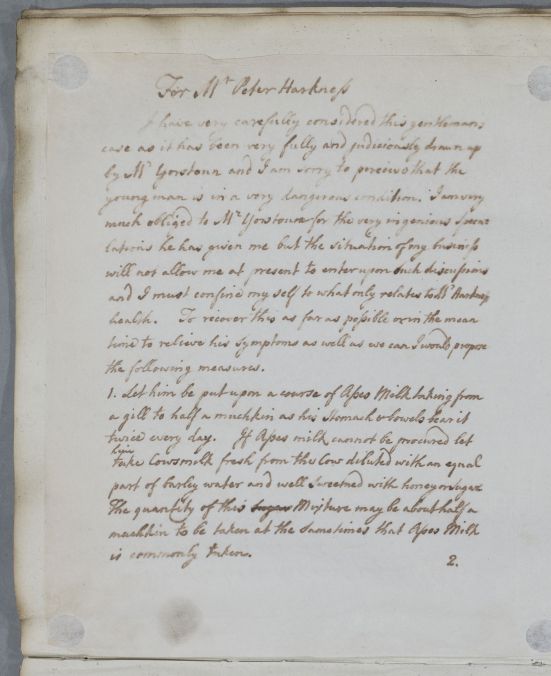 For Mr Peter Harkness
I have very carefully considered this gentlemans
case as it has been very fully and judiciously drawn up
by Mr Yorstoun and I am sorry to perceive that the
young man is in a very dangerous condition. I am very
much obliged to Mr Yorstoun for the very ingenious specu
lations he has given me but the situation of my business
will not allow me at present to enter upon such discussions
and I must confine my self to what only relates to Mr Harkness
health. To recover this as far as possible or in the mean
time to relieve his symptoms as well as we can I would propose
the following measures.
1. Let him be put upon a course of Asses Milk taking from
a gill to half a muchkin as his stomach & bowels bear it
twice every day. If Asses milk cannot be procured let
him
take Cows milk fresh from the Cow diluted with an equal
part of barley water and well sweetned with honey or sugar
The quantity of this sugar Mixture may be about half a
muchkin to be taken at the same times that Asses Milk
is commonly taken.
2.